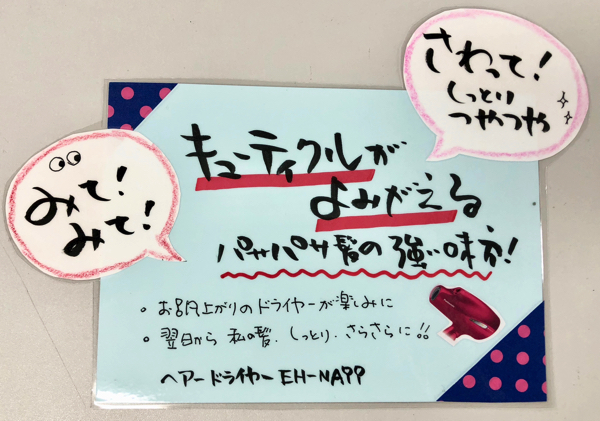 さわって!
しっとり
つやつや
みて!
みて!
キューティクルが
よみがえる
パサパサ髪の強い味方!
・お風呂上がりのドライヤーが楽しみに
・翌日から 私の髪、しっとり・さらさらに!!
ヘアードライヤー EH-NA99